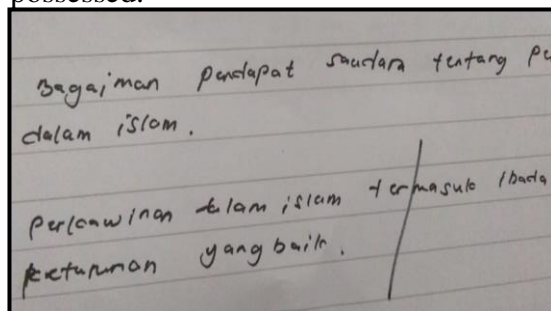 possessed.
Bagaiman pendapat saudara tentang pe
dalam islam.
perkawinan dalam islam termasuk ibada
keturunan yang baik.